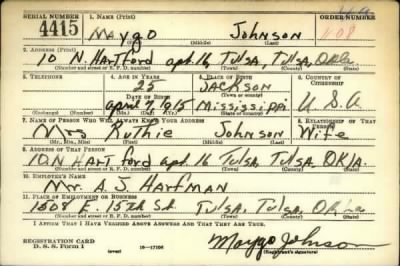 SERIAL NUMBER 1. NAME (Print) ORDER NUMBER
4415 Maygo Johnson
(First) (Middle) (Last)
2. ADDRESS (Print)
10 N. Hartford apt. 16 Tulsa, Tulsa, Okla
(Number and street or R. F. D. number) (Town) (County) (State)
3. TELEPHONE 4. AGE IN YEARS 5. PLACE OF BIRTH 6. COUNTRY OF CITIZENSHIP
25 Jackson
DATE OF BIRTH (Town or county)
April 7, 1915 Mississippi U.S.A
(Exchange) (No.) (Mo.) (Day) (Yr.) (State or country)
7. NAME OF PERSON WHO WILL ALWAYS KNOW YOUR ADDRESS 8. RELATIONSHIP OF THAT PERSON
Mrs Ruthie Johnson Wife
(Mr., Mrs., Miss) (First) (Middle) (Last)
9. ADDRESS OF THAT PERSON
10 N Hartford apt. 16 Tulsa, Tulsa, Okla.
(Number and street or R. F. D. number) (Town) (County) (State)
10. EMPLOYER'S NAME
Mr. A. J. Hartman
11. PLACE OF EMPLOYMENT OR BUSINESS
1508 E. 15th St. Tulsa, Tulsa, Okla
(Number and street or R. F. D. number) (Town) (County) (State)
I AFFIRM THAT I HAVE VERIFIED ABOVE ANSWERS AND THAT THEY ARE TRUE.
REGISTRATION CARD
D. S. S. Form 1 Maygo Johnson
(Registrant's signature)